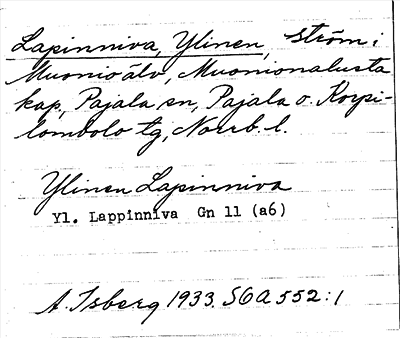 Lapinniva, Ylinen, ström i
Muonioälv, Muonionalusta
kap, Pajala sn, Pajala o. Korpi-
lombolo tg, Norrb. l.
Ylinen Lapinniva
Yl. Lappinniva Gn 11 (a6)
A. Isberg 1933. SOA 552:1